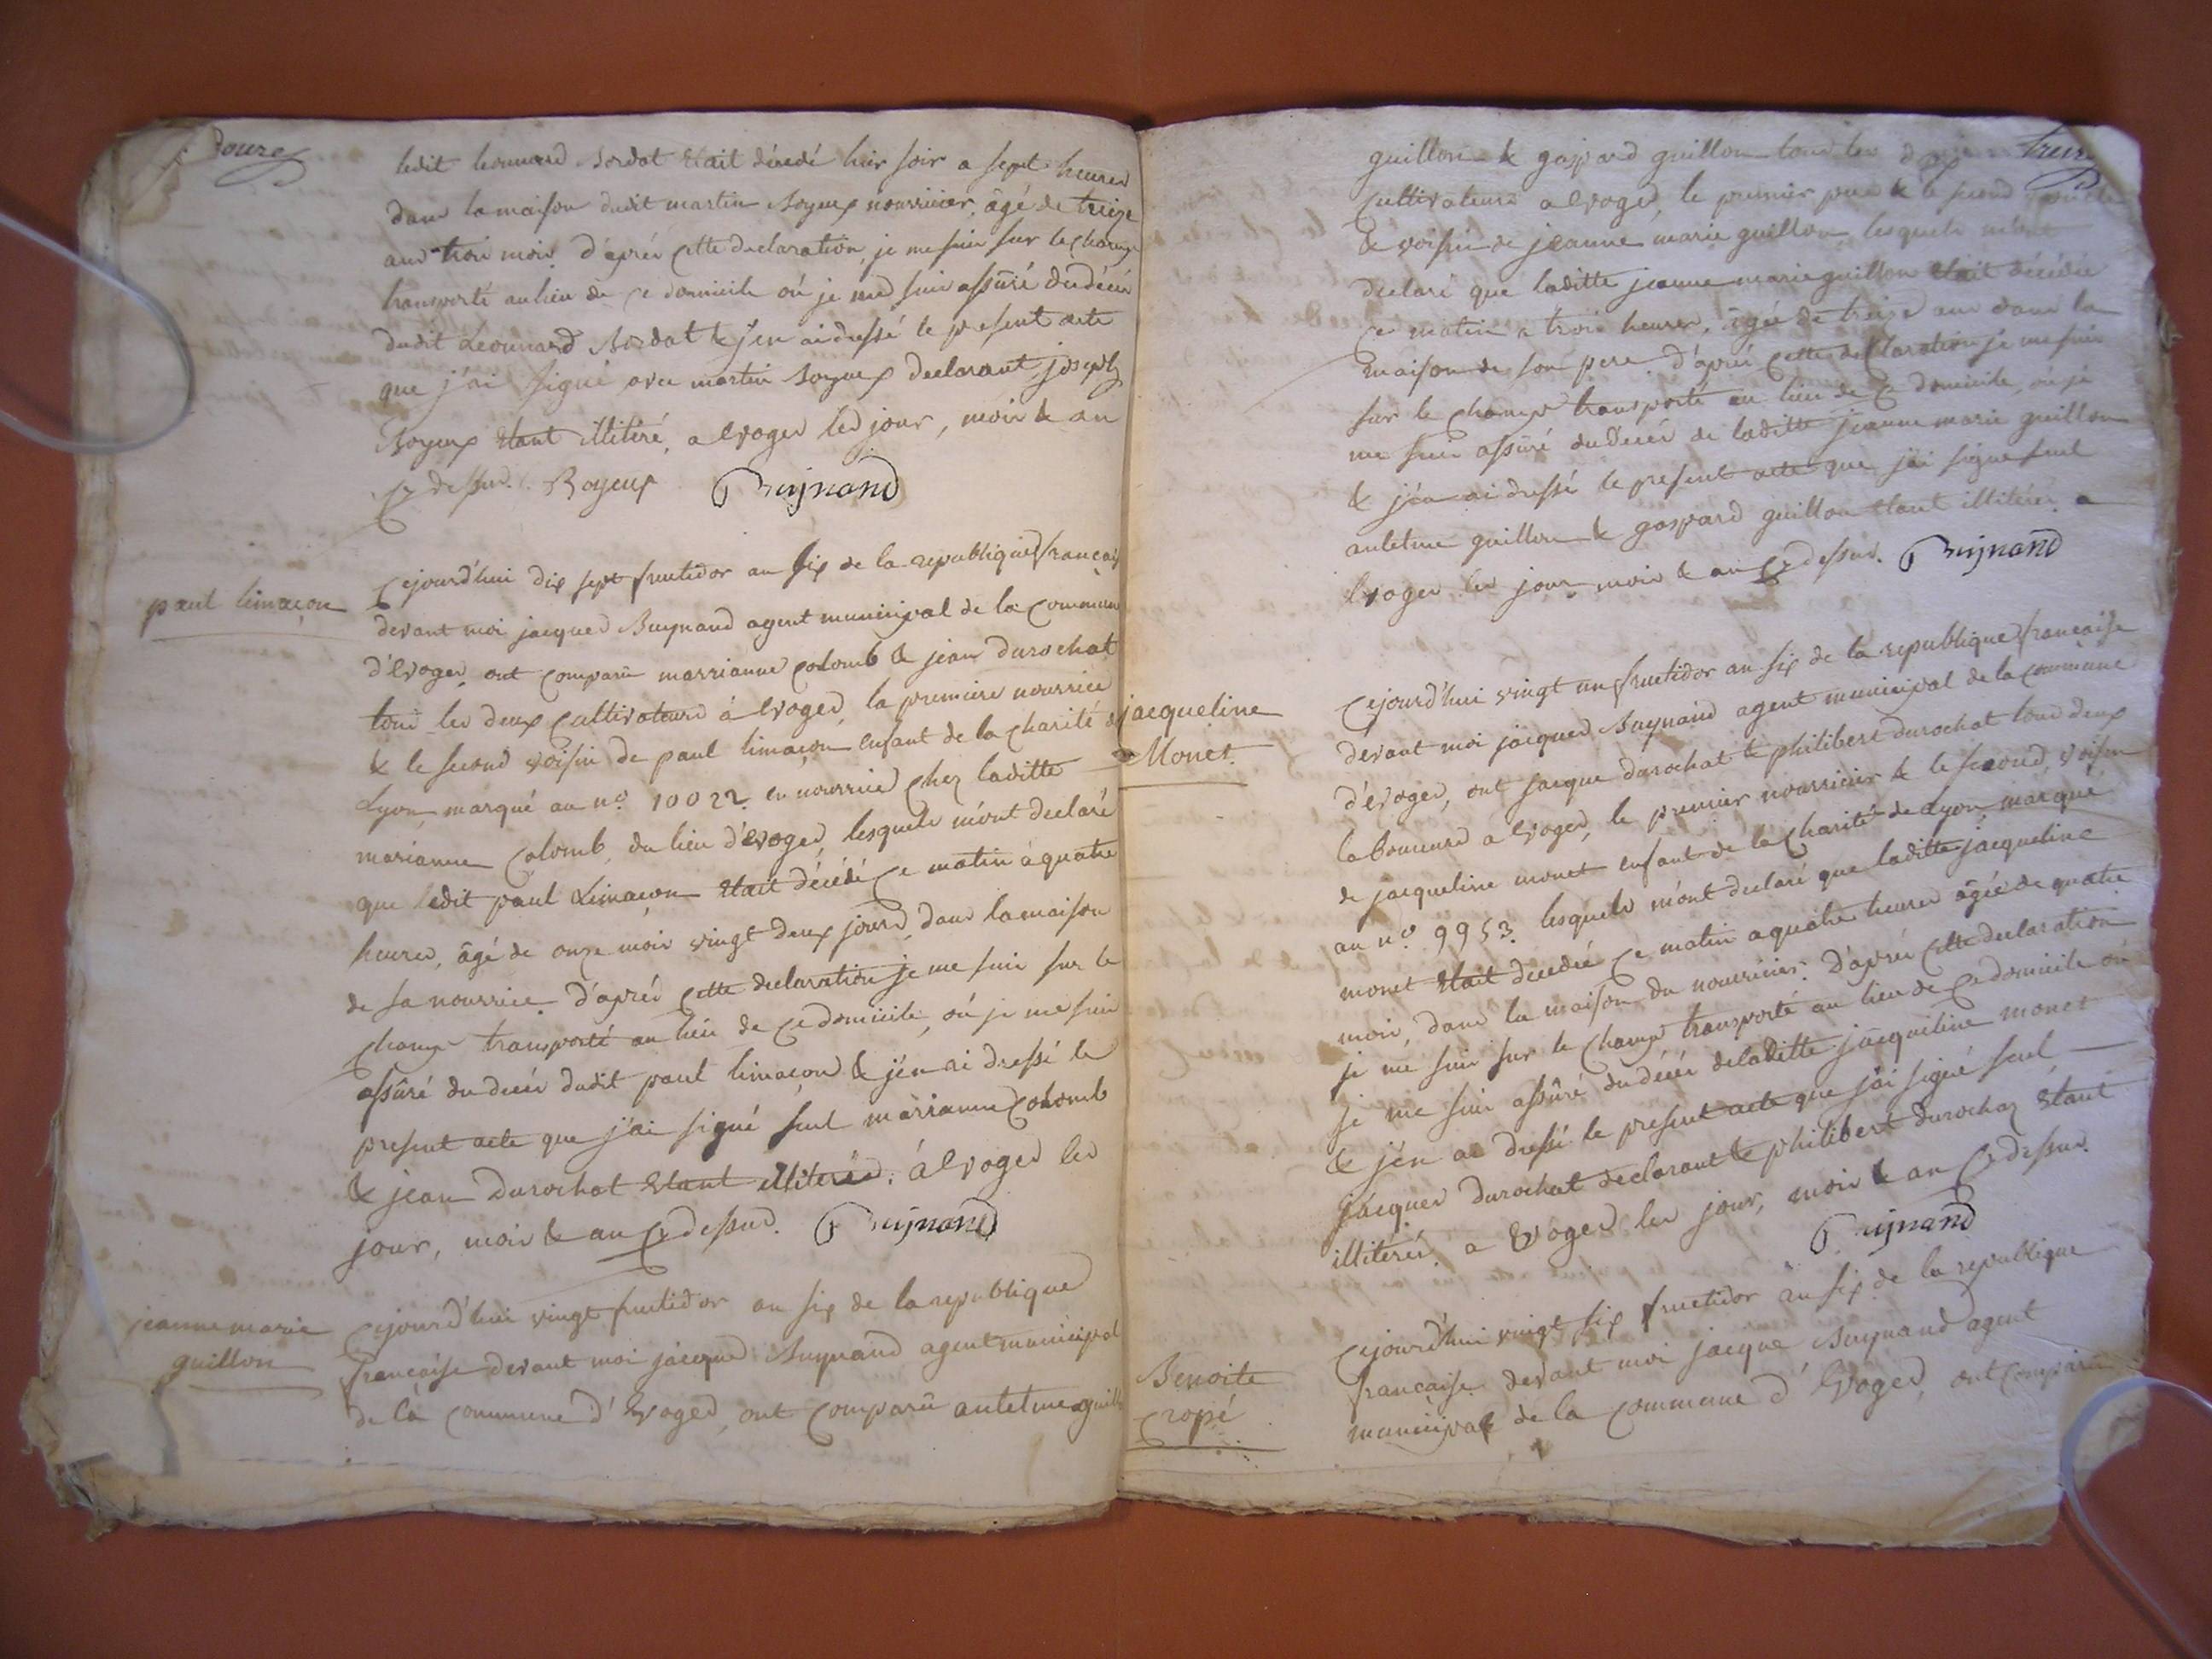 douze
ledit leonnard Bordat était décédé hier soir a sept heures
dans la maison dudit martin Boyeux nourricier, âgé de treize
ans trois mois d'aprés cette declaration, je me suis sur le champ
transporté au lieu de ce domicile oú je me suis assûré du décés
dudit Léonnard Bordat & j'en ai dressé le present acte
que j'ai signé avec martin Boyeux declarant, joseph
Boyeux étant illitéré, a Evoges les jour, mois & an
cy dessus. Boyeux Buynand
paul limaçon
Cejourd'hui dix sept fructidor an six de la republique français
devant moi jacques Buynand agent municipal de la commune
d'Evoges, ont comparû marrianne colomb & jean durochat
tous les deux cultivateurs á Evoges, la premiere nourrice
& le second voisin de paul limaçon enfant de la charité de
Lyon, marqué au n.º 10022. en nourrice chez laditte
marianne Colomb, du lieu d'Evoges, lesquels m'ont declaré
que ledit paul Limaçon était décédé ce matin á quatre
heures, âgé de onze mois vingt deux jours, dans la maison
de sa nourrice. d'aprés cette declaration je me suis sur le
champ transporté au lieu de ce domicile, oú je me suis
assûré du decés dudit paul limaçon & j'en ai dressé le
present acte que j'ai signé seul marianne Colomb
& jean Durochat étant illiterés. á Evoges les
jour, mois & an cy dessus. Buynand
jeanne marie
guillon
Cejourd'hui vingt fructidor an six de la republique
francaise devant moi jacques Buynand agent municipal
de la commune d'Evoges, ont comparû antelme guillon
treize
guillon & gaspard guillon tous les deux
cultivateurs a Evoges, le premier pere & le second
& voisin de jeanne marie guillon, lesquels m'ont
declaré que laditte jeanne marie guillon était décédée
ce matin a trois heures, âgée de treize ans dans la
maison de son pere. d'aprés cette declaration je me suis
sur le champ transporté au lieu de ce domicile, oú je
me suis assûré du decés de laditte jeanne marie guillon
& j'en ai dressé le present acte que j'ai signé seul
antelme guillon & gaspard guillon étant illitérés. a
Evoges les jour mois & an cy dessus. Buynand
jacqueline
Monet
Cejourd'hui vingt un fructidor an six de la republique francaise
devant moi jacques Buynand agent municipal de la commune
d'Evoges, ont jacque durochat & philibert durochat tous deux
laboureurs a Evoges, le premier nourricier & le second, voisin
de jacqueline monet enfant de la Charité de Lyon, marqué
au n.º 9953. lesquels m'ont declaré que laditte jacqueline
monet était decedée ce matin a quatre heures âgée de quatre
mois, dans la maison du nourricier. d'aprés cette declaration
je me suis sur le champ transporté au lieu de ce domicile oú
je me suis assûré du décés de laditte jacqueline monet
& j'en ai dressé le present acte que j'ai signé seul
jacques durochat declarant & philibert durochaz étant
illitérés. a Evoges les jour, mois & an cy dessus.
Buynand
Benoite
cropé
Cejourd'hui vingt six fructidor an six de la republique
francaise devant moi jacque Buynand agent
municipal de la commune d'Evoges, ont comparû